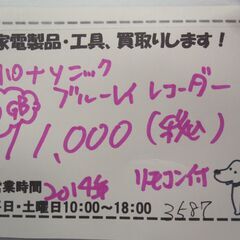 家電製品・工具、買取りします！
パナソニック
ブルーレイレコーダー
11,000(税込)
営業時間
2014年
リモコン付
平日・土曜日10:00～18:00
3587